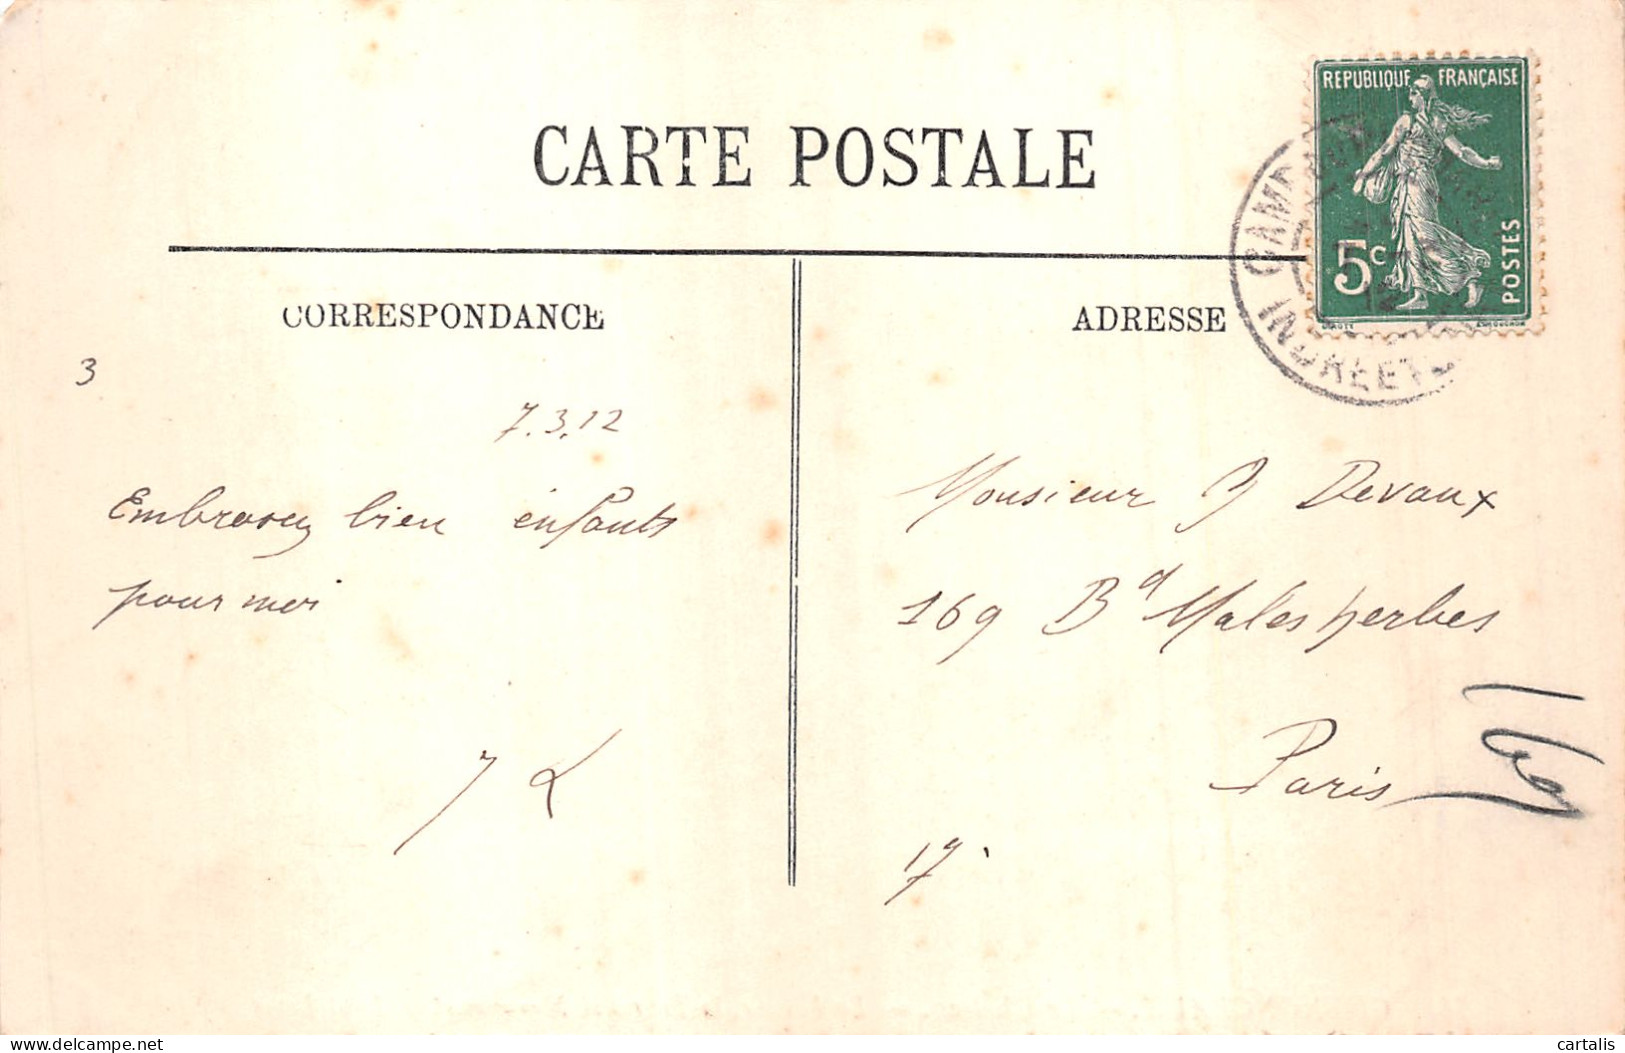 CARTE POSTALE
REPUBLIQUE FRANÇAISE
5c
POSTES
INDRE ET
CORRESPONDANCE
ADRESSE
3
7.3.12
Embrassez bien enfants
pour moi
Monsieur J Devaux
169 Bd Malesherbes
Paris
17.
cartalis